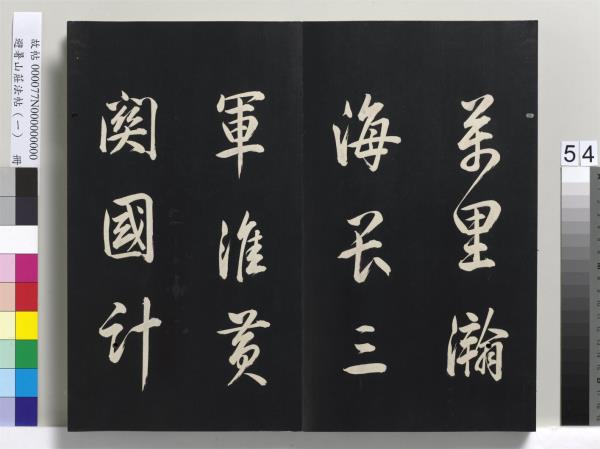 萬里瀚
海長三
軍淮黃
関國計
故帖 000077N0000000000
避暑山莊法帖(一) 冊
5 4